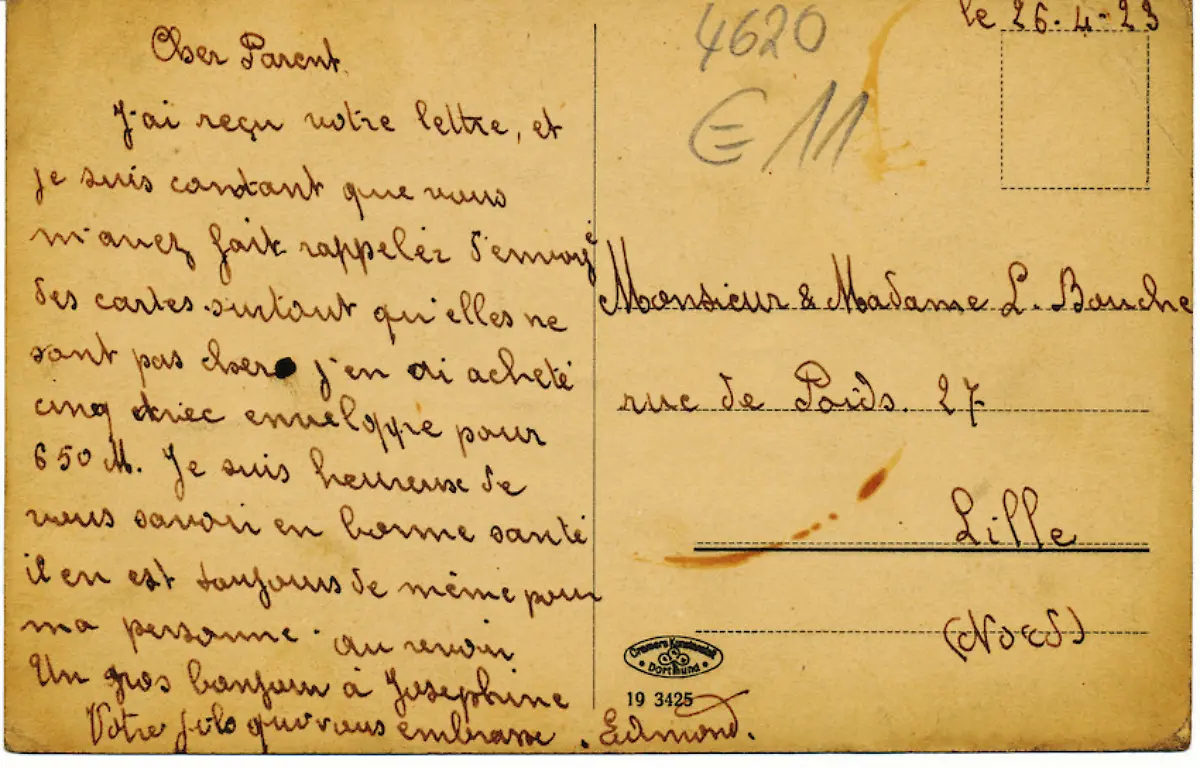 le 26-4-23
4620
E 11
Cher Parent
J'ai reçu votre lettre, et
je suis contant que vous
m'avez fait rappeler d'envoyé
des cartes surtout qu'elles ne
sont pas chers j'en ai acheté
cinq avec enveloppe pour
650 M. Je suis heureuse de
vous savoir en bonne santé
il en est toujours de même pour
ma personne. au revoir
Un gros bonjour à Josephine
Votre fils qui vous embrasse. Edmond.
Monsieur & Madame L. Bouche
rue de Poids. 27
Lille
(Nord)
Cramers Kunstanstalt
Dortmund
19 3425